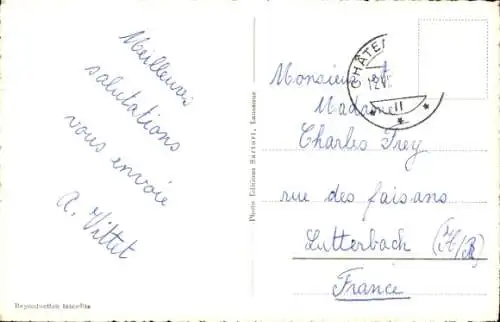 Meilleures
salutations
vous envoie
A. Vittet
Reproduction interdite
Photo Editions Sartori, Lausanne
CHÂTE
12.VI
II
Monsieur et
Madame
Charles Frey
rue des faisans
Lutterbach (H/R)
France